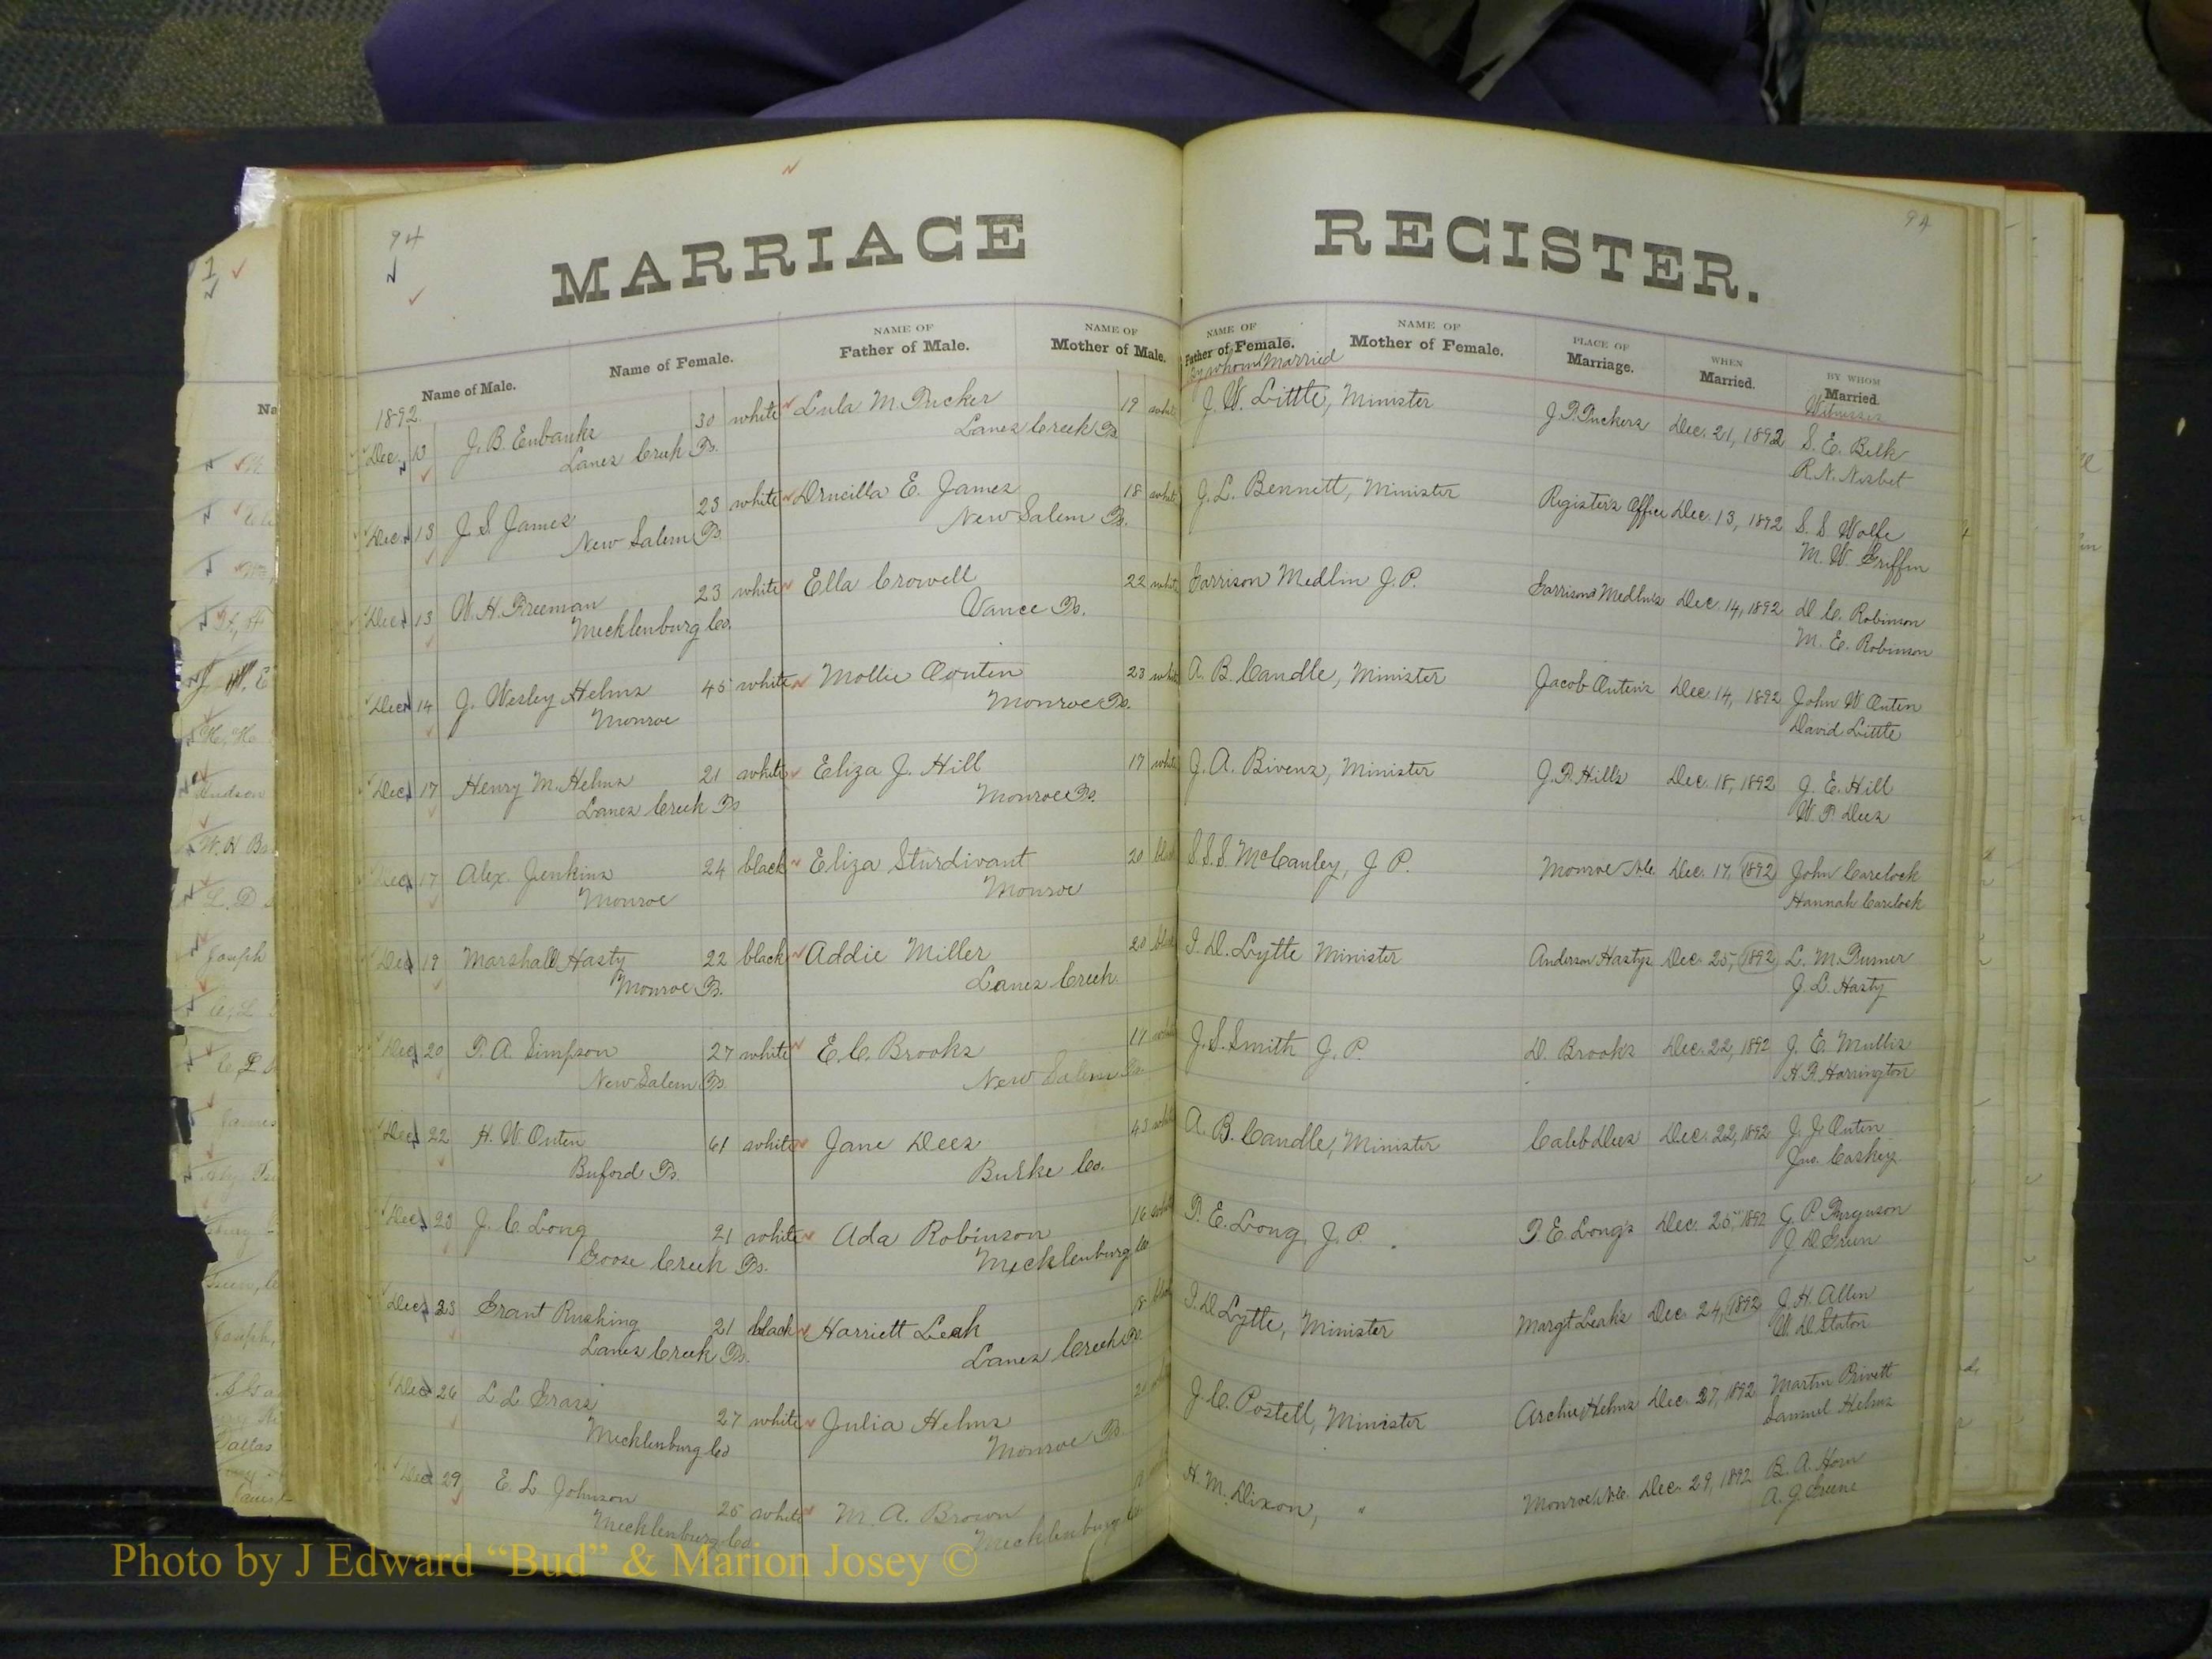 94
MARRIAGE REGISTER.
94
Name of Male.
Name of Female.
NAME OF Father of Male.
NAME OF Mother of Male.
NAME OF Father of Female.
By whom Married
NAME OF Mother of Female.
PLACE OF Marriage.
WHEN Married.
BY WHOM Married.
Witnesses
1892.
Dec. 13 J. B. Eubanks 30 white Lula M. Tucker 19 white J. W. Little, Minister J. P. Tuckers Dec. 21, 1892 S. E. Belk
Lanes Creek Ts. Lanes Creek Ts. R. N. Nisbet
Dec. 13 J. S. James 23 white Drucilla E. James 18 white J. L. Bennett, Minister Register's Office Dec. 13, 1892 S. S. Wolfe
New Salem Ts. New Salem Ts. M. W. Griffin
Dec. 13 W. H. Freeman 23 white Ella Crowell 22 white Garrison Medlin J. P. Garrison Medlin's Dec. 14, 1892 D. C. Robinson
Mecklenburg Co. Vance Ts. M. E. Robinson
Dec. 14 J. Wesley Helms 45 white Mollie Outin 23 white A. B. Caudle, Minister Jacob Outen's Dec. 14, 1892 John W Outen
Monroe Monroe Ts. David Little
Dec. 17 Henry M. Helms 21 white Eliza J. Hill 17 white J. A. Bivens, Minister J. P. Hills Dec. 18, 1892 J. E. Hill
Lanes Creek Ts Monroe Ts. W. P. Dees
Dec. 17 Alex. Jenkins 24 black Eliza Sturdivant 20 black S. S. S. McCauley, J. P. Monroe N.C. Dec. 17, 1892 John Carelock
Monroe Monroe Hannah Carelock
Dec. 19 Marshall Hasty 22 black Addie Miller 20 black I. D. Lytte Minister Anderson Hastys Dec. 25, 1892 L. M. Turner
Monroe Ts. Lanes Creek J. L. Hasty
Dec. 20 T. A. Simpson 27 white E. C. Brooks white J. S. Smith J. P. D. Brook's Dec. 22, 1892 J. E. Mullis
New Salem Ts. New Salem Ts. H. F. Harrington
Dec. 22 H. W. Outen 61 white Jane Dees 43 white A. B. Caudle, Minister Caleb Dees Dec. 22, 1892 J. J. Outen
Buford Ts. Burke Co. Jno. Caskey
Dec. 23 J. C. Long 21 white Ada Robinson 16 white T. E. Long, J. P. T. E. Long's Dec. 25, 1892 G. P. Furguson
Goose Creek Ts. Mecklenburg Co J. D. Green
Dec. 23 Grant Rushing 21 black Harriett Leak 18 black I. D. Lytte, Minister Margt Leaks Dec. 24, 1892 J. H. Allen
Lanes Creek Ts. Lanes Creek Ts. W. D. Staton
Dec 26 L. L. Grass 27 white Julia Helms J. C. Postell, Minister Archie Helms Dec. 27, 1892 Martin Privett
Mecklenburg Co Monroe Ts. Samuel Helms
Dec. 29 E. L. Johnson 25 white M. A. Brown H. M. Dixon, " Monroe N.C. Dec. 29, 1892 B. A. Horn
Mecklenburg Co. Mecklenburg Co. A. J. Greene
Photo by J Edward "Bud" & Marion Josey ©